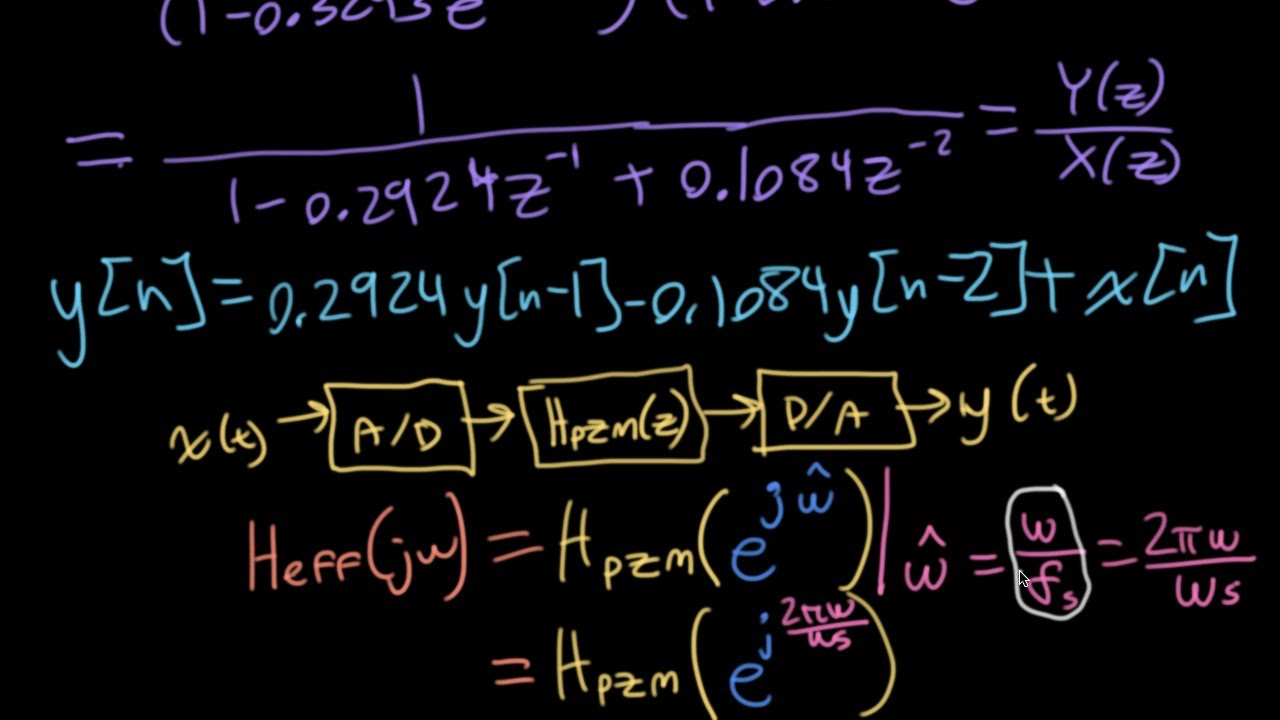 = 1 / (1 - 0.2924z^-1 + 0.1084z^-2) = Y(z) / X(z)
y[n] = 0.2924y[n-1] - 0.1084y[n-2] + x[n]
x(t) → A/D → Hpzm(z) → D/A → y(t)
Heff(jw) = Hpzm(e^jŵ) | ŵ = w/fs = 2πw/ws
= Hpzm(e^j 2πw/ws)